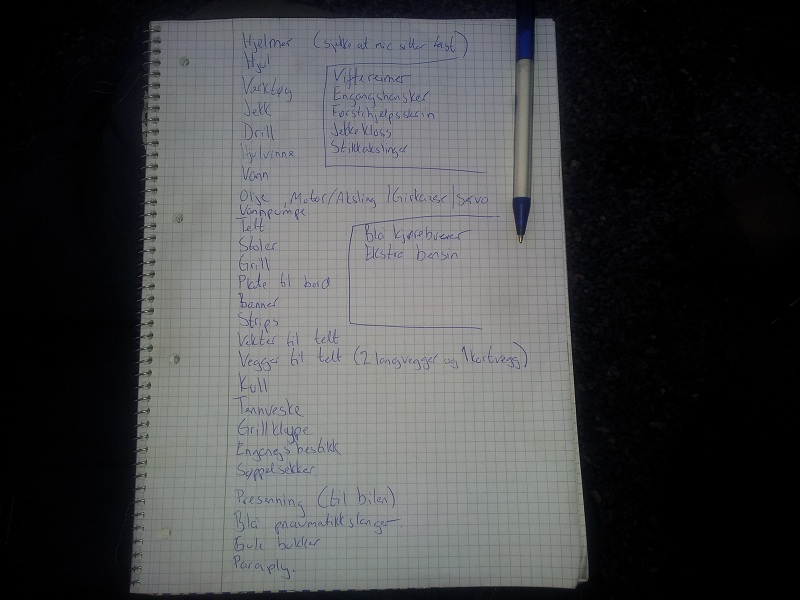 Hjelmer (sjekke at mic sitter fast)
Hjul
Verktøy
Jekk
Drill
Hjulvinne
Vann
Viftereimer
Engangshansker
Førstihjelpsskrin
Jekkekloss
Stikkakslinger
Olje, Motor/Aksling/Girkasse/Servo
Vannpumpe
Telt
Stoler
Grill
Plate til bord
Banner
Strips
Vekter til telt
Blå kjørebukser
Ekstra bensin
Vegger til telt (2 langvegger og 1 kortvegg)
Kull
Tennveske
Grillklype
Engangsbestikk
Søppelsekker
Presenning (til bilen)
Blå pneumatikkslanger.
Gule bukker
Paraply.